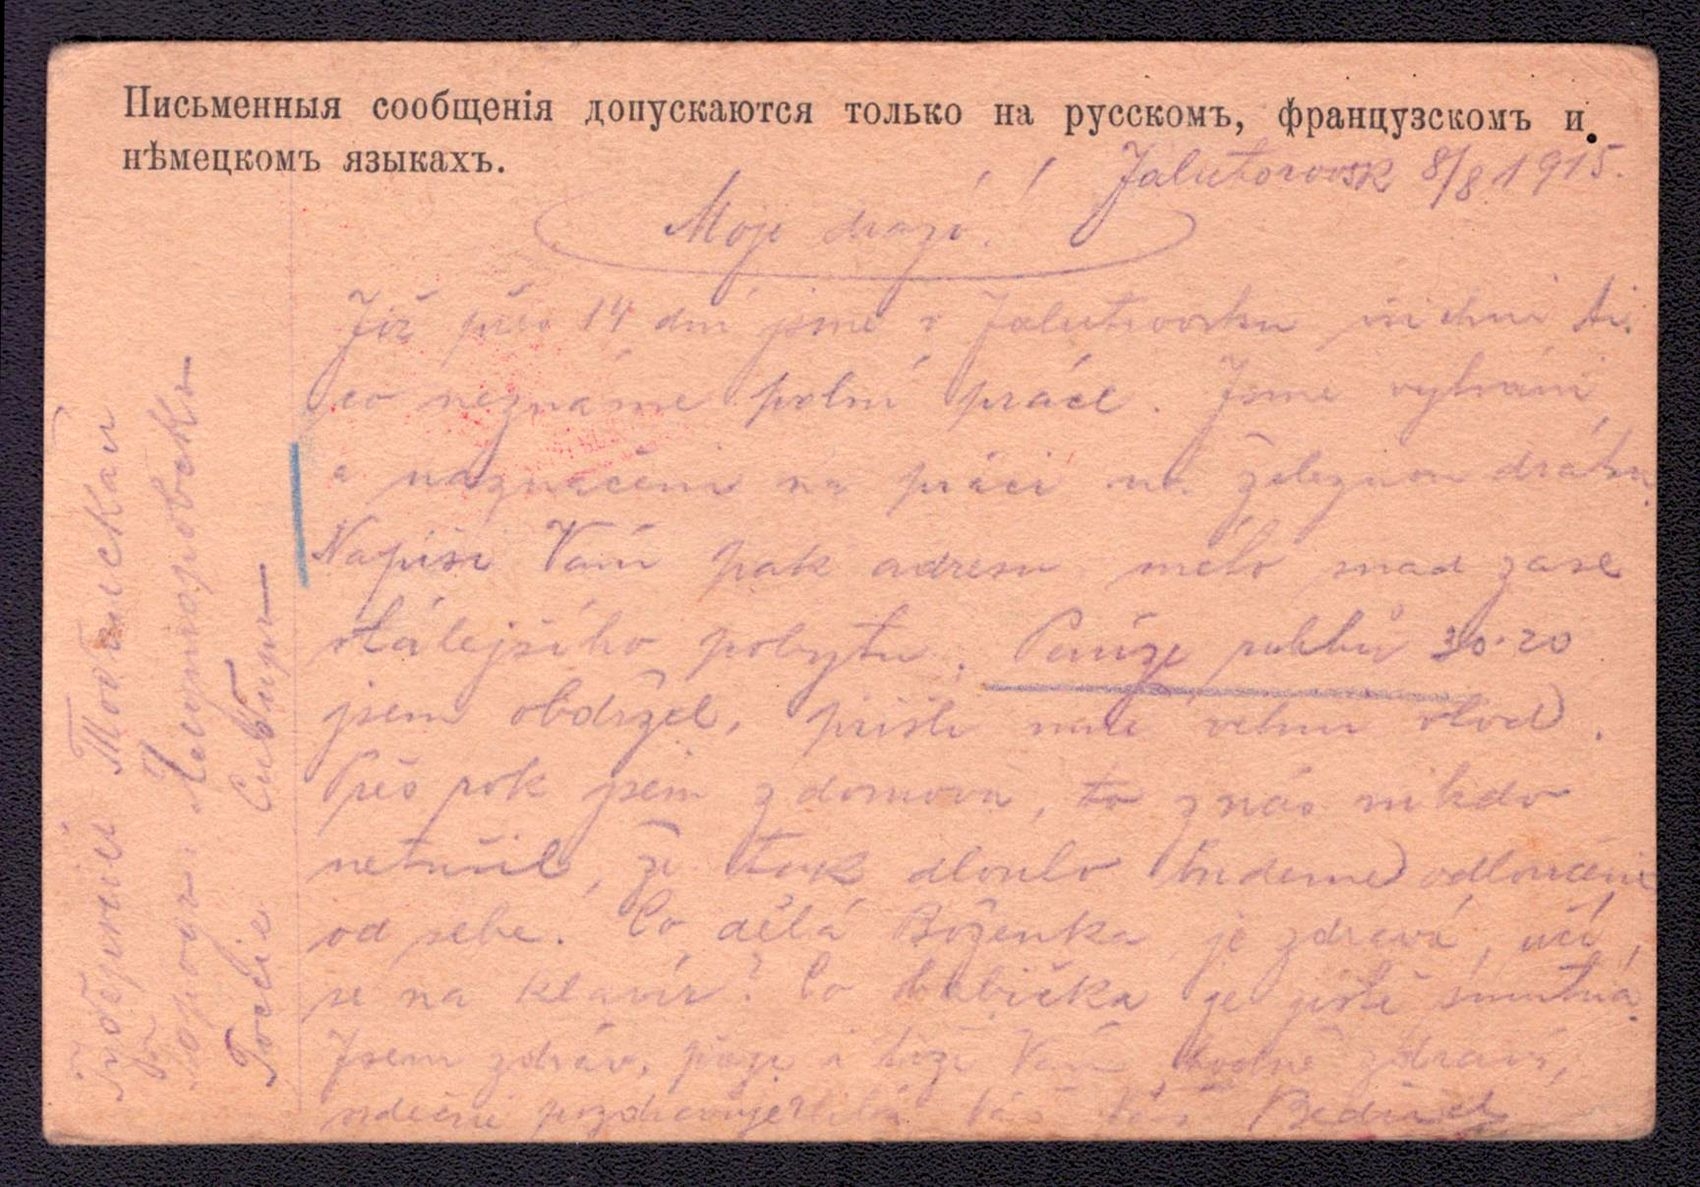 Письменныя сообщенія допускаются только на русскомъ, французскомъ и
нѣмецкомъ языкахъ.
Jalutorovsk 8/8 1915.
Moji drazí!
Již přes 14 dní jsme v Jalutrovsku všichni ti
co neznáme polní práce. Jsme vybráni
a naznačeni na práci na železnou dráhu.
Napíši Vám pak adresu mého snad zase
stálejšího pobytu. Peníze rublů 30·20
jsem obdržel, přišli mně velmi vhod.
Přes rok jsem z domova, to z nás nikdo
netušil, že tak dlouho budeme odloučeni
od sebe. Co dělá Boženka, je zdravá, učí
se na klavír? Co babička je jistě smutná.
Jsem zdráv, přeji i též Vám hodně zdraví,
srdečně pozdravuje Vás Váš Bedřich
Губернія Тобильская
Городъ Ялуторовскъ
Россіе Сибирь